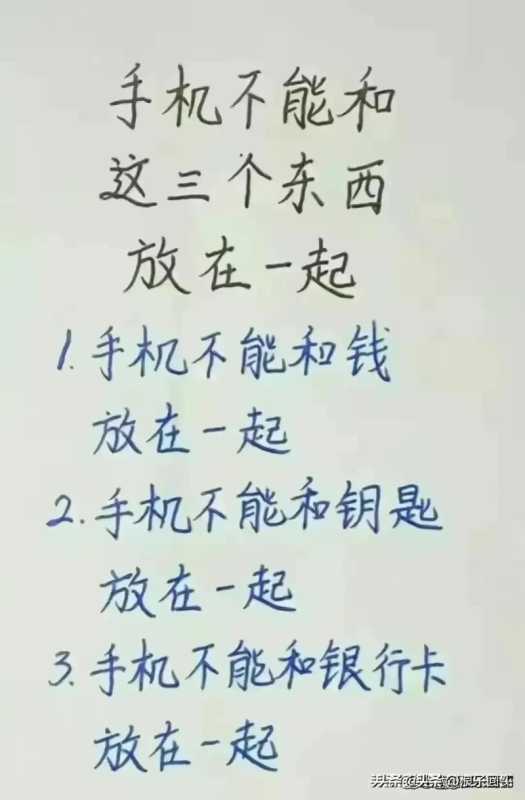 手机不能和
这三个东西
放在一起
1. 手机不能和钱
放在一起
2. 手机不能和钥匙
放在一起
3. 手机不能和银行卡
放在一起